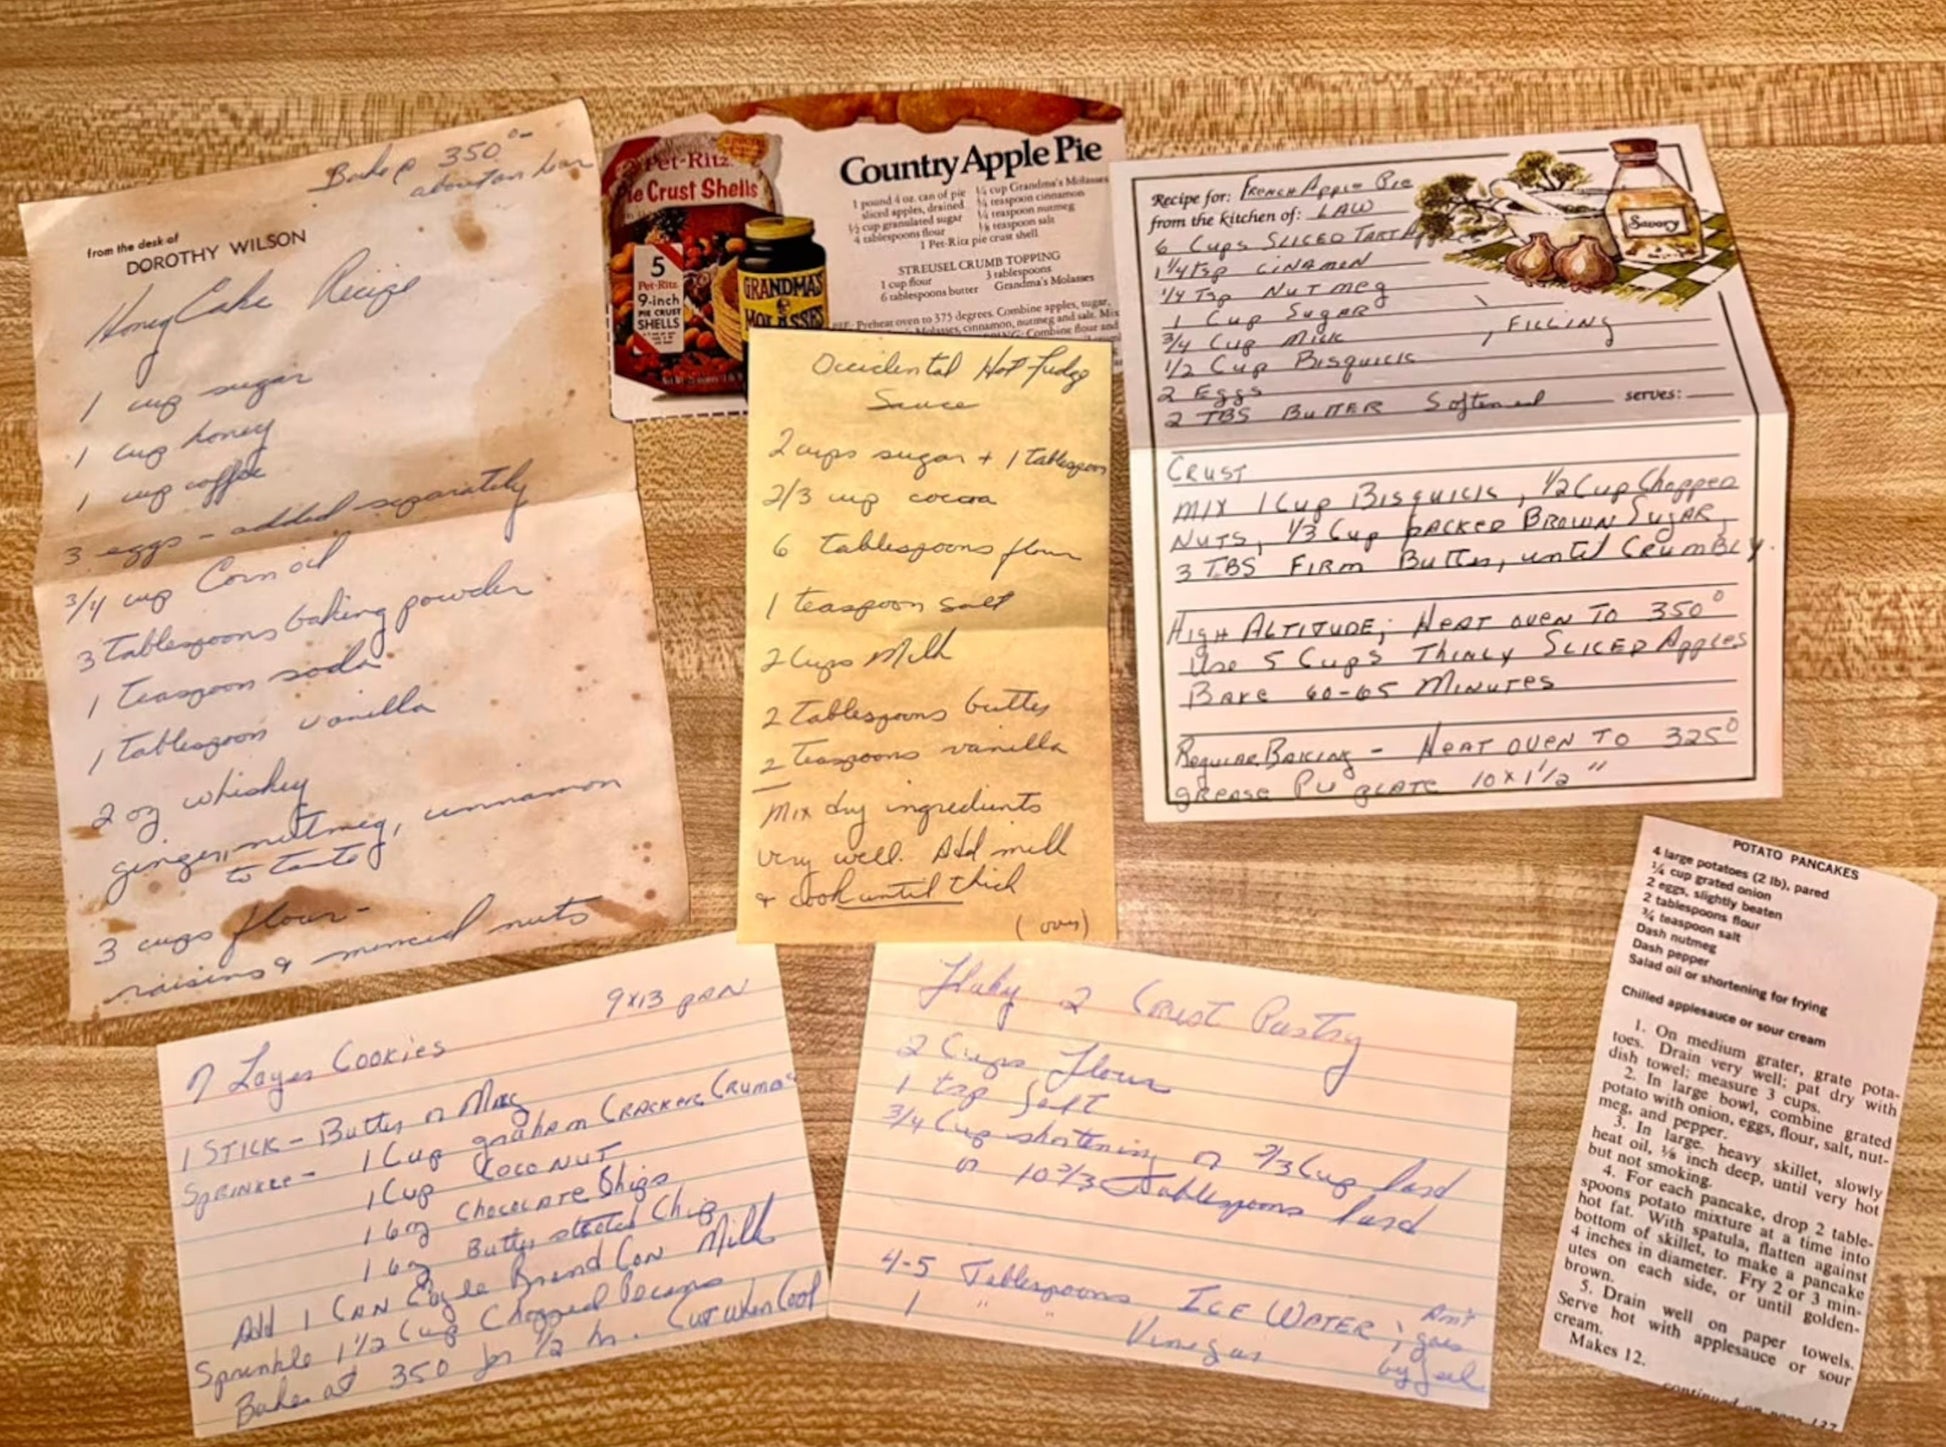 Bake @ 350°-
about an hour
from the desk of
DOROTHY WILSON
Honey Cake Recipe
1 cup sugar
1 cup honey
1 cup coffee
3 eggs - added separately
3/4 cup Corn oil
3 Tablespoons baking powder
1 teaspoon soda
1 tablespoon vanilla
2 oz whiskey
ginger, nutmeg, cinnamon
to taste
3 cups flour -
raisins & minced nuts
Pet-Ritz
Pie Crust Shells
5
Pet-Ritz
9-inch
PIE CRUST
SHELLS
GRANDMA'S
MOLASSES
Country Apple Pie
1 pound 4 oz. can of pie
sliced apples, drained
½ cup granulated sugar
4 tablespoons flour
¼ cup Grandma's Molasses
¼ teaspoon cinnamon
¼ teaspoon nutmeg
⅛ teaspoon salt
1 Pet-Ritz pie crust shell
STREUSEL CRUMB TOPPING
1 cup flour
6 tablespoons butter
3 tablespoons
Grandma's Molasses
PIE: Preheat oven to 375 degrees. Combine apples, sugar,
Molasses, cinnamon, nutmeg and salt. Mix
Combine flour and
Occidental Hot Fudge
Sauce
2 cups sugar + 1 tablespoon
2/3 cup cocoa
6 tablespoons flour
1 teaspoon salt
2 Cups Milk
2 tablespoons butter
2 teaspoons vanilla
Mix dry ingredients
very well. Add milk
& cook until thick
(over)
Recipe for: French Apple Pie
from the kitchen of: LAW
6 Cups SLICED TART
1 1/4 tsp CINAMEN
1/4 Tsp NUTMEG
1 Cup Sugar
3/4 Cup Milk
, FILLING
1/2 Cup Bisquick
2 Eggs
serves:
2 TBS BUTTER Softened
Crust
MIX 1 Cup Bisquick, 1/2 Cup Chopped
Nuts, 1/3 Cup PACKED BROWN Sugar,
3 TBS FIRM Butter, until CRUMBLY.
HIGH ALTITUDE; HEAT OVEN TO 350°
Use 5 Cups THINLY SLICED Apples
BAKE 60-65 MINUTES
Regular Baking - HEAT OVEN TO 325°
grease PIE PLATE 10 x 1 1/2"
Savory
POTATO PANCAKES
4 large potatoes (2 lb), pared
¼ cup grated onion
2 eggs, slightly beaten
2 tablespoons flour
¾ teaspoon salt
Dash nutmeg
Dash pepper
Salad oil or shortening for frying
Chilled applesauce or sour cream
1. On medium grater, grate pota-
toes. Drain very well; pat dry with
dish towel; measure 3 cups.
2. In large bowl, combine grated
potato with onion, eggs, flour, salt, nut-
meg, and pepper.
3. In large, heavy skillet, slowly
heat oil, ⅛ inch deep, until very hot
but not smoking.
4. For each pancake, drop 2 table-
spoons potato mixture at a time into
hot fat. With spatula, flatten against
bottom of skillet, to make a pancake
4 inches in diameter. Fry 2 or 3 min-
utes on each side, or until golden-
brown.
5. Drain well on paper towels.
Serve hot with applesauce or sour
cream.
Makes 12.
continued on page 137
9x13 pan
7 Layer Cookies
1 STICK - Butter or Marg
SPRINKLE - 1 Cup graham CRACKER CRUMBS
1 Cup COCONUT
1 6oz CHOCOLATE Chips
1 6oz Butter scotch Chip
Add 1 CAN Eagle Brand CAN Milk
Sprinkle 1 1/2 Cup Chopped Pecans
Bake at 350 for 1/2 hr. Cut when Cool
Flaky 2 Crust Pastry
2 Cups Flour
1 tsp Salt
3/4 Cup shortening or 2/3 Cup lard
or 10 2/3 Tablespoons lard
4-5 Tablespoons ICE WATER ; Am't
goes
by feel
1 " " Vinegar